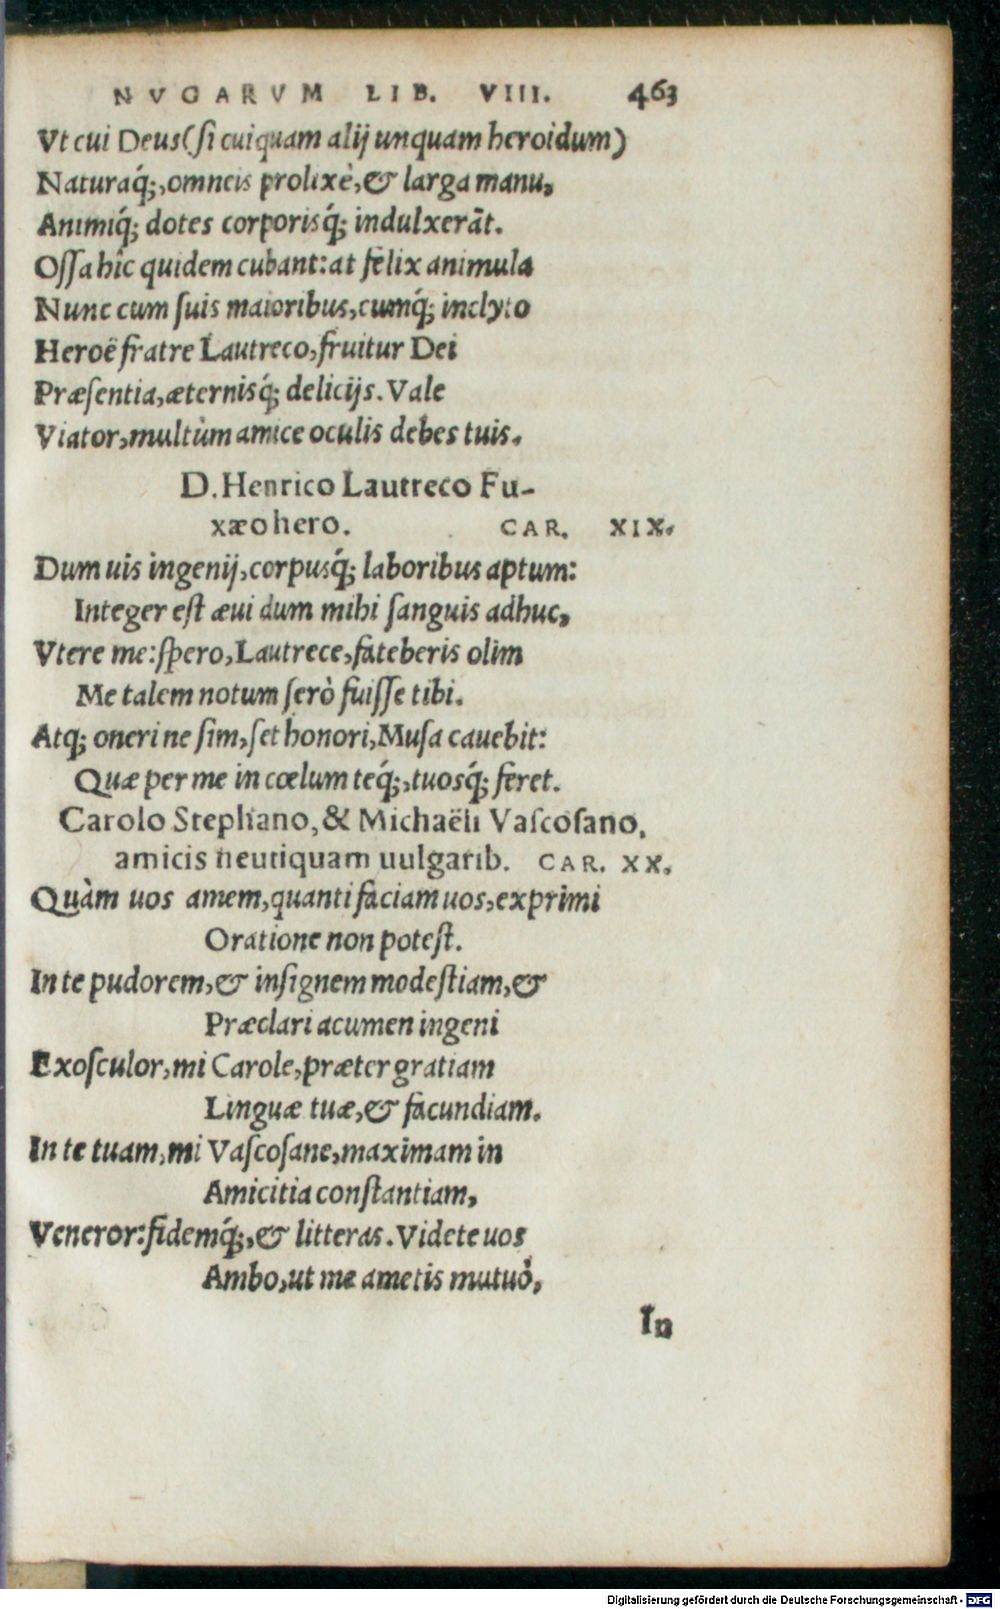 NVGARVM LIB. VIII. 463
Vt cui Deus (si cuiquam alij unquam heroidum)
Naturaq́;, omneis prolixè, & larga manu,
Animiq́; dotes corporisq́; indulxerãt.
Ossa hîc quidem cubant: at felix animula
Nunc cum suis maioribus, cumq́; inclyto
Heroë fratre Lautreco, fruitur Dei
Præsentia, æternisq́; delicijs. Vale
Viator, multùm amice oculis debes tuis.
D. Henrico Lautreco Fu-
xæo hero. CAR. XIX.
Dum uis ingenij, corpusq́; laboribus aptum:
Integer est æui dum mihi sanguis adhuc,
Vtere me: spero, Lautrece, fateberis olim
Me talem notum serò fuisse tibi.
Atq; oneri ne sim, set honori, Musa cauebit:
Quæ per me in cœlum teq́;, tuosq́; feret.
Carolo Stephano, & Michaëli Vascosano,
amicis neutiquam uulgarib. CAR. XX.
Quàm uos amem, quanti faciam uos, exprimi
Oratione non potest.
In te pudorem, & insignem modestiam, &
Præclari acumen ingeni
Exosculor, mi Carole, præter gratiam
Linguæ tuæ, & facundiam.
In te tuam, mi Vascosane, maximam in
Amicitia constantiam,
Veneror: fidemq́;, & litteras. Videte uos
Ambo, ut me ametis mutuò,
In
Digitalisierung gefördert durch die Deutsche Forschungsgemeinschaft - DFG